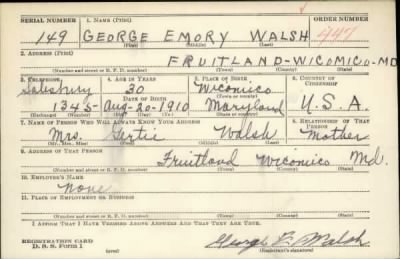 SERIAL NUMBER 1. NAME (Print) ORDER NUMBER
149 GEORGE EMORY WALSH 447
(First) (Middle) (Last)
2. ADDRESS (Print)
FRUITLAND-WICOMICO-MD
(Number and street or R. F. D. number) (Town) (County) (State)
3. TELEPHONE 4. AGE IN YEARS 5. PLACE OF BIRTH 6. COUNTRY OF CITIZENSHIP
Salisbury 30 Wicomico
DATE OF BIRTH (Town or county)
1345- Aug-20-1910 Maryland U.S.A.
(Exchange) (Number) (Mo.) (Day) (Yr.) (State or country)
7. NAME OF PERSON WHO WILL ALWAYS KNOW YOUR ADDRESS 8. RELATIONSHIP OF THAT PERSON
Mrs. Gertie Walsh Mother
(Mr., Mrs., Miss) (First) (Middle) (Last)
9. ADDRESS OF THAT PERSON
Fruitland Wicomico Md.
(Number and street or R. F. D. number) (Town) (County) (State)
10. EMPLOYER'S NAME
None
11. PLACE OF EMPLOYMENT OR BUSINESS
(Number and street or R. F. D. number) (Town) (County) (State)
I AFFIRM THAT I HAVE VERIFIED ABOVE ANSWERS AND THAT THEY ARE TRUE.
REGISTRATION CARD
D. S. S. Form 1 (over) George E. Walsh
(Registrant's signature)